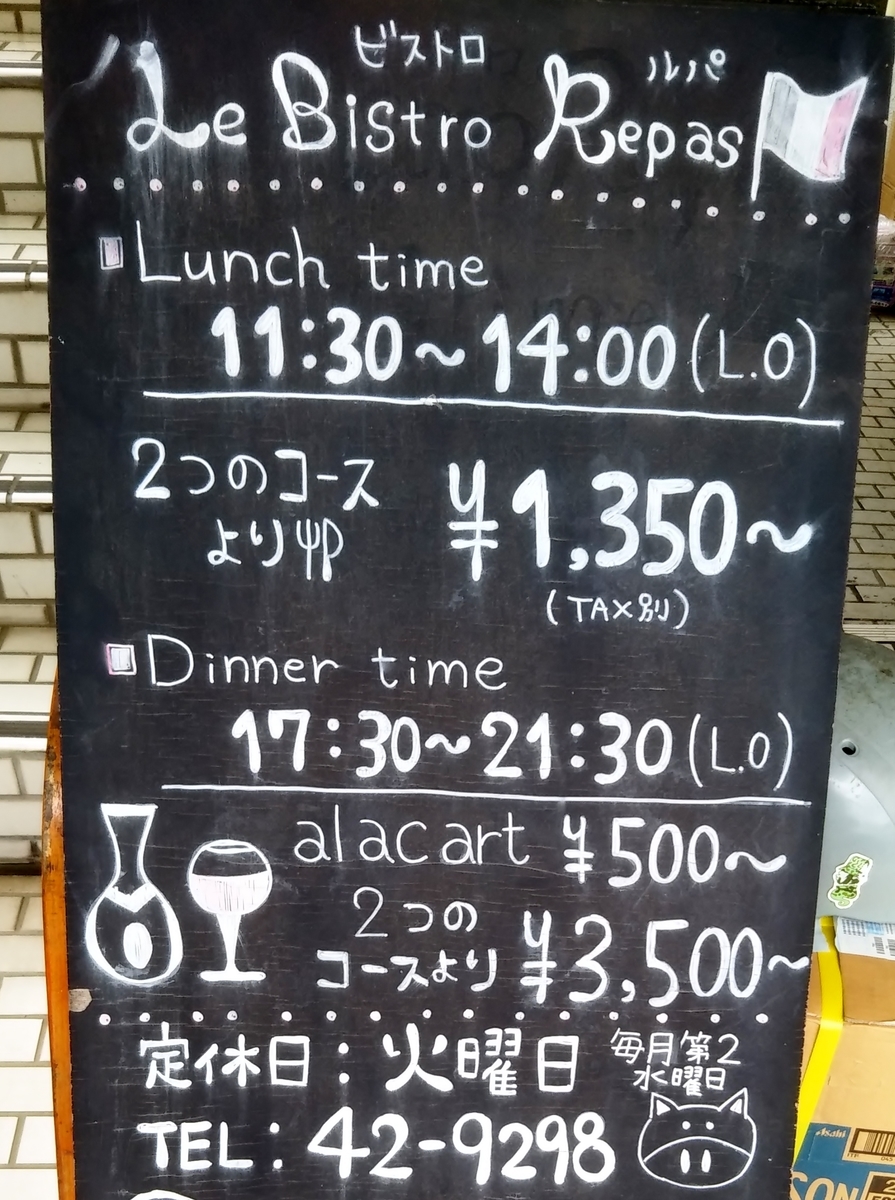 ビストロ ルパ
Le Bistro Repas
Lunch time
11:30~14:00(L.O)
2つのコース
より
¥1,350~
(TAX別)
Dinner time
17:30~21:30(L.O)
alacart ¥500~
2つの
コースより ¥3,500~
定休日:火曜日 毎月第2
水曜日
TEL:42-9298
Asahi